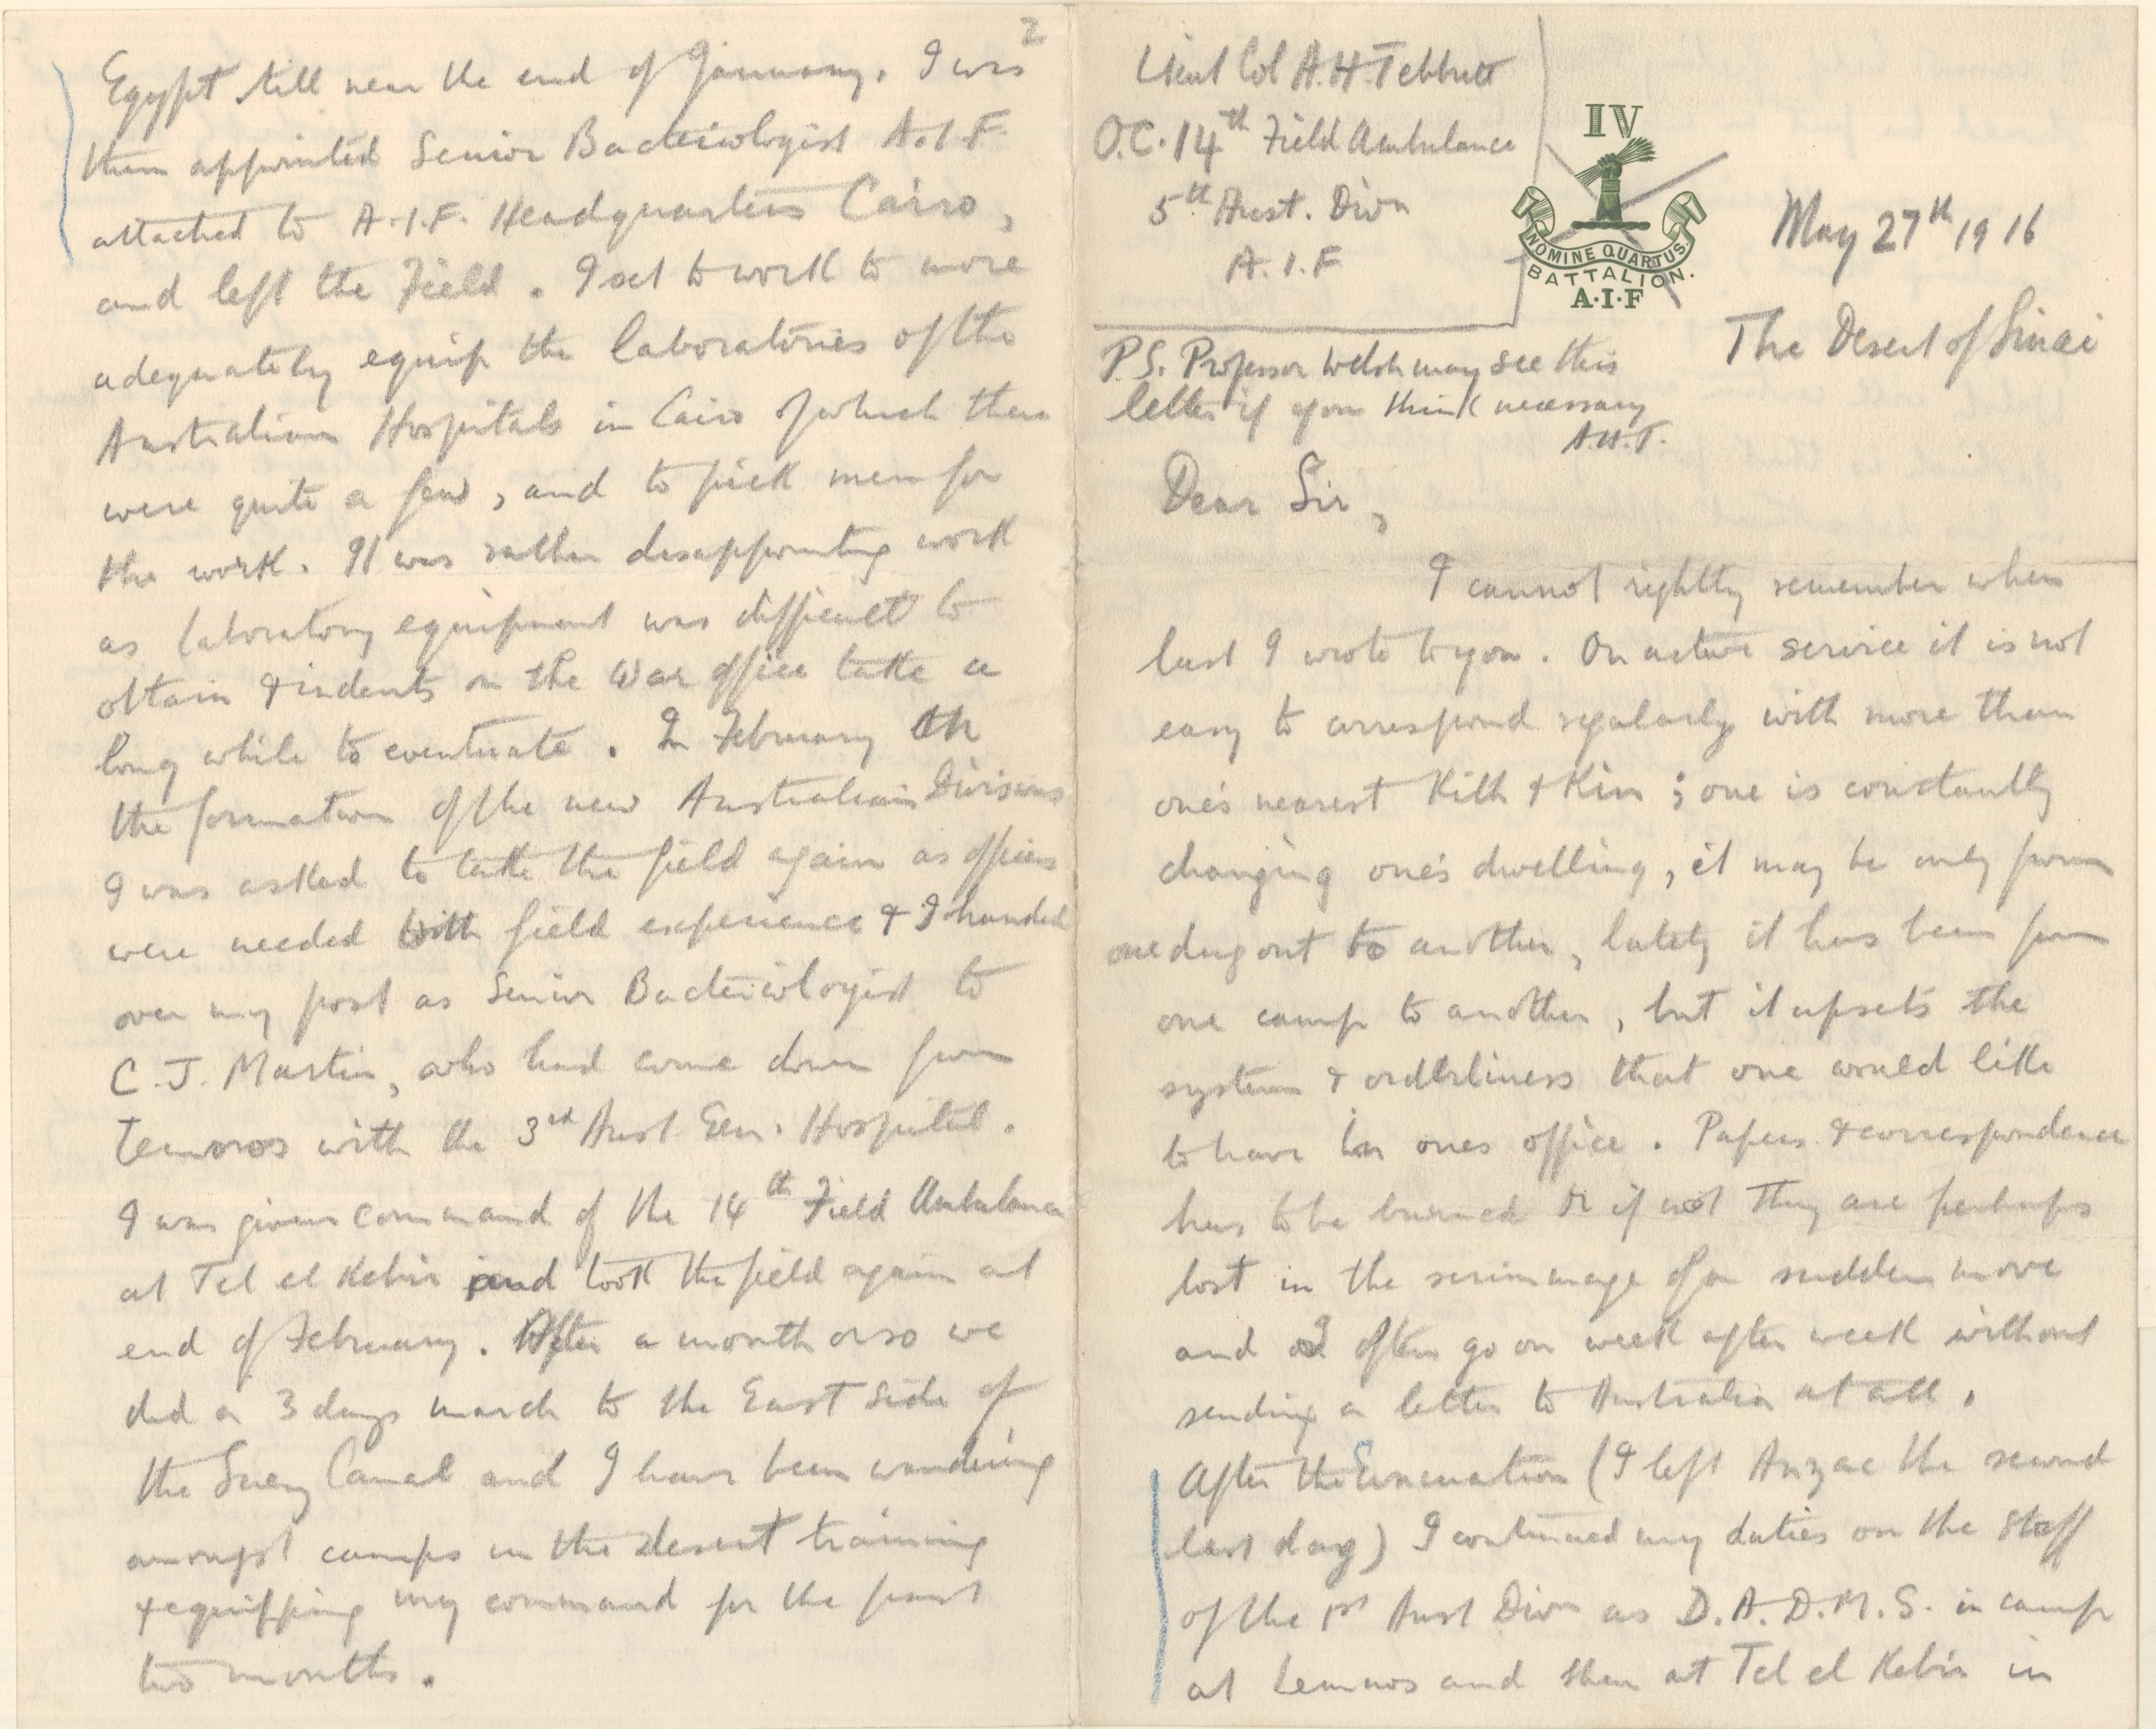 Lieut Col A.H. Tebbutt
O.C. 14th Field Ambulance
5th Aust. Divn
A.I.F
IV
NOMINE QUARTUS
BATTALION.
A.I.F
May 27th 1916
The Desert of Sinai
P.S. Professor Welsh may see this
letter if you think necessary
A.H.T.
Dear Sir,
I cannot rightly remember when
last I wrote to you. On active service it is not
easy to correspond regularly with more than
one's nearest Kith & Kin; one is constantly
changing one's dwelling, it may be only from
one dug out to another, lately it has been from
one camp to another, but it upsets the
system & orderliness that one would like
to have in ones office. Papers & correspondence
has to be burned or if not they are perhaps
lost in the scrimmage of a sudden move
and I often go on week after week without
sending a letter to Australia at all.
After the Evacuation (I left Anzac the second
last day) I continued my duties on the Staff
of the 1st Aust Divn as D.A.D.M.S. in camp
at Lemnos and then at Tel el Kebir in
2
Egypt till near the end of January. I was
then appointed Senior Bacteriologist A.I.F.
attached to A.I.F. Headquarters Cairo,
and left the Field. I set to work to more
adequately equip the laboratories of the
Australian Hospitals in Cairo of which there
were quite a few, and to pick men for
the work. It was rather disappointing work
as laboratory equipment was difficult to
obtain & indents on the War office take a
long while to eventuate. In February
the formation of the new Australian Divisions
I was asked to take the field again as officers
were needed with field experience & I handed
over my post as Senior Bacteriologist to
C.J. Martin, who had come down from
Lemnos with the 3rd Aust Gen. Hospital.
I was given command of the 14th Field Ambulance
at Tel el Kebir and took the field again at
end of February. After a month or so we
did a 3 days march to the East Side of
the Suez Canal and I have been wandering
amongst camps in the desert training
& equipping my command for the past
two months.